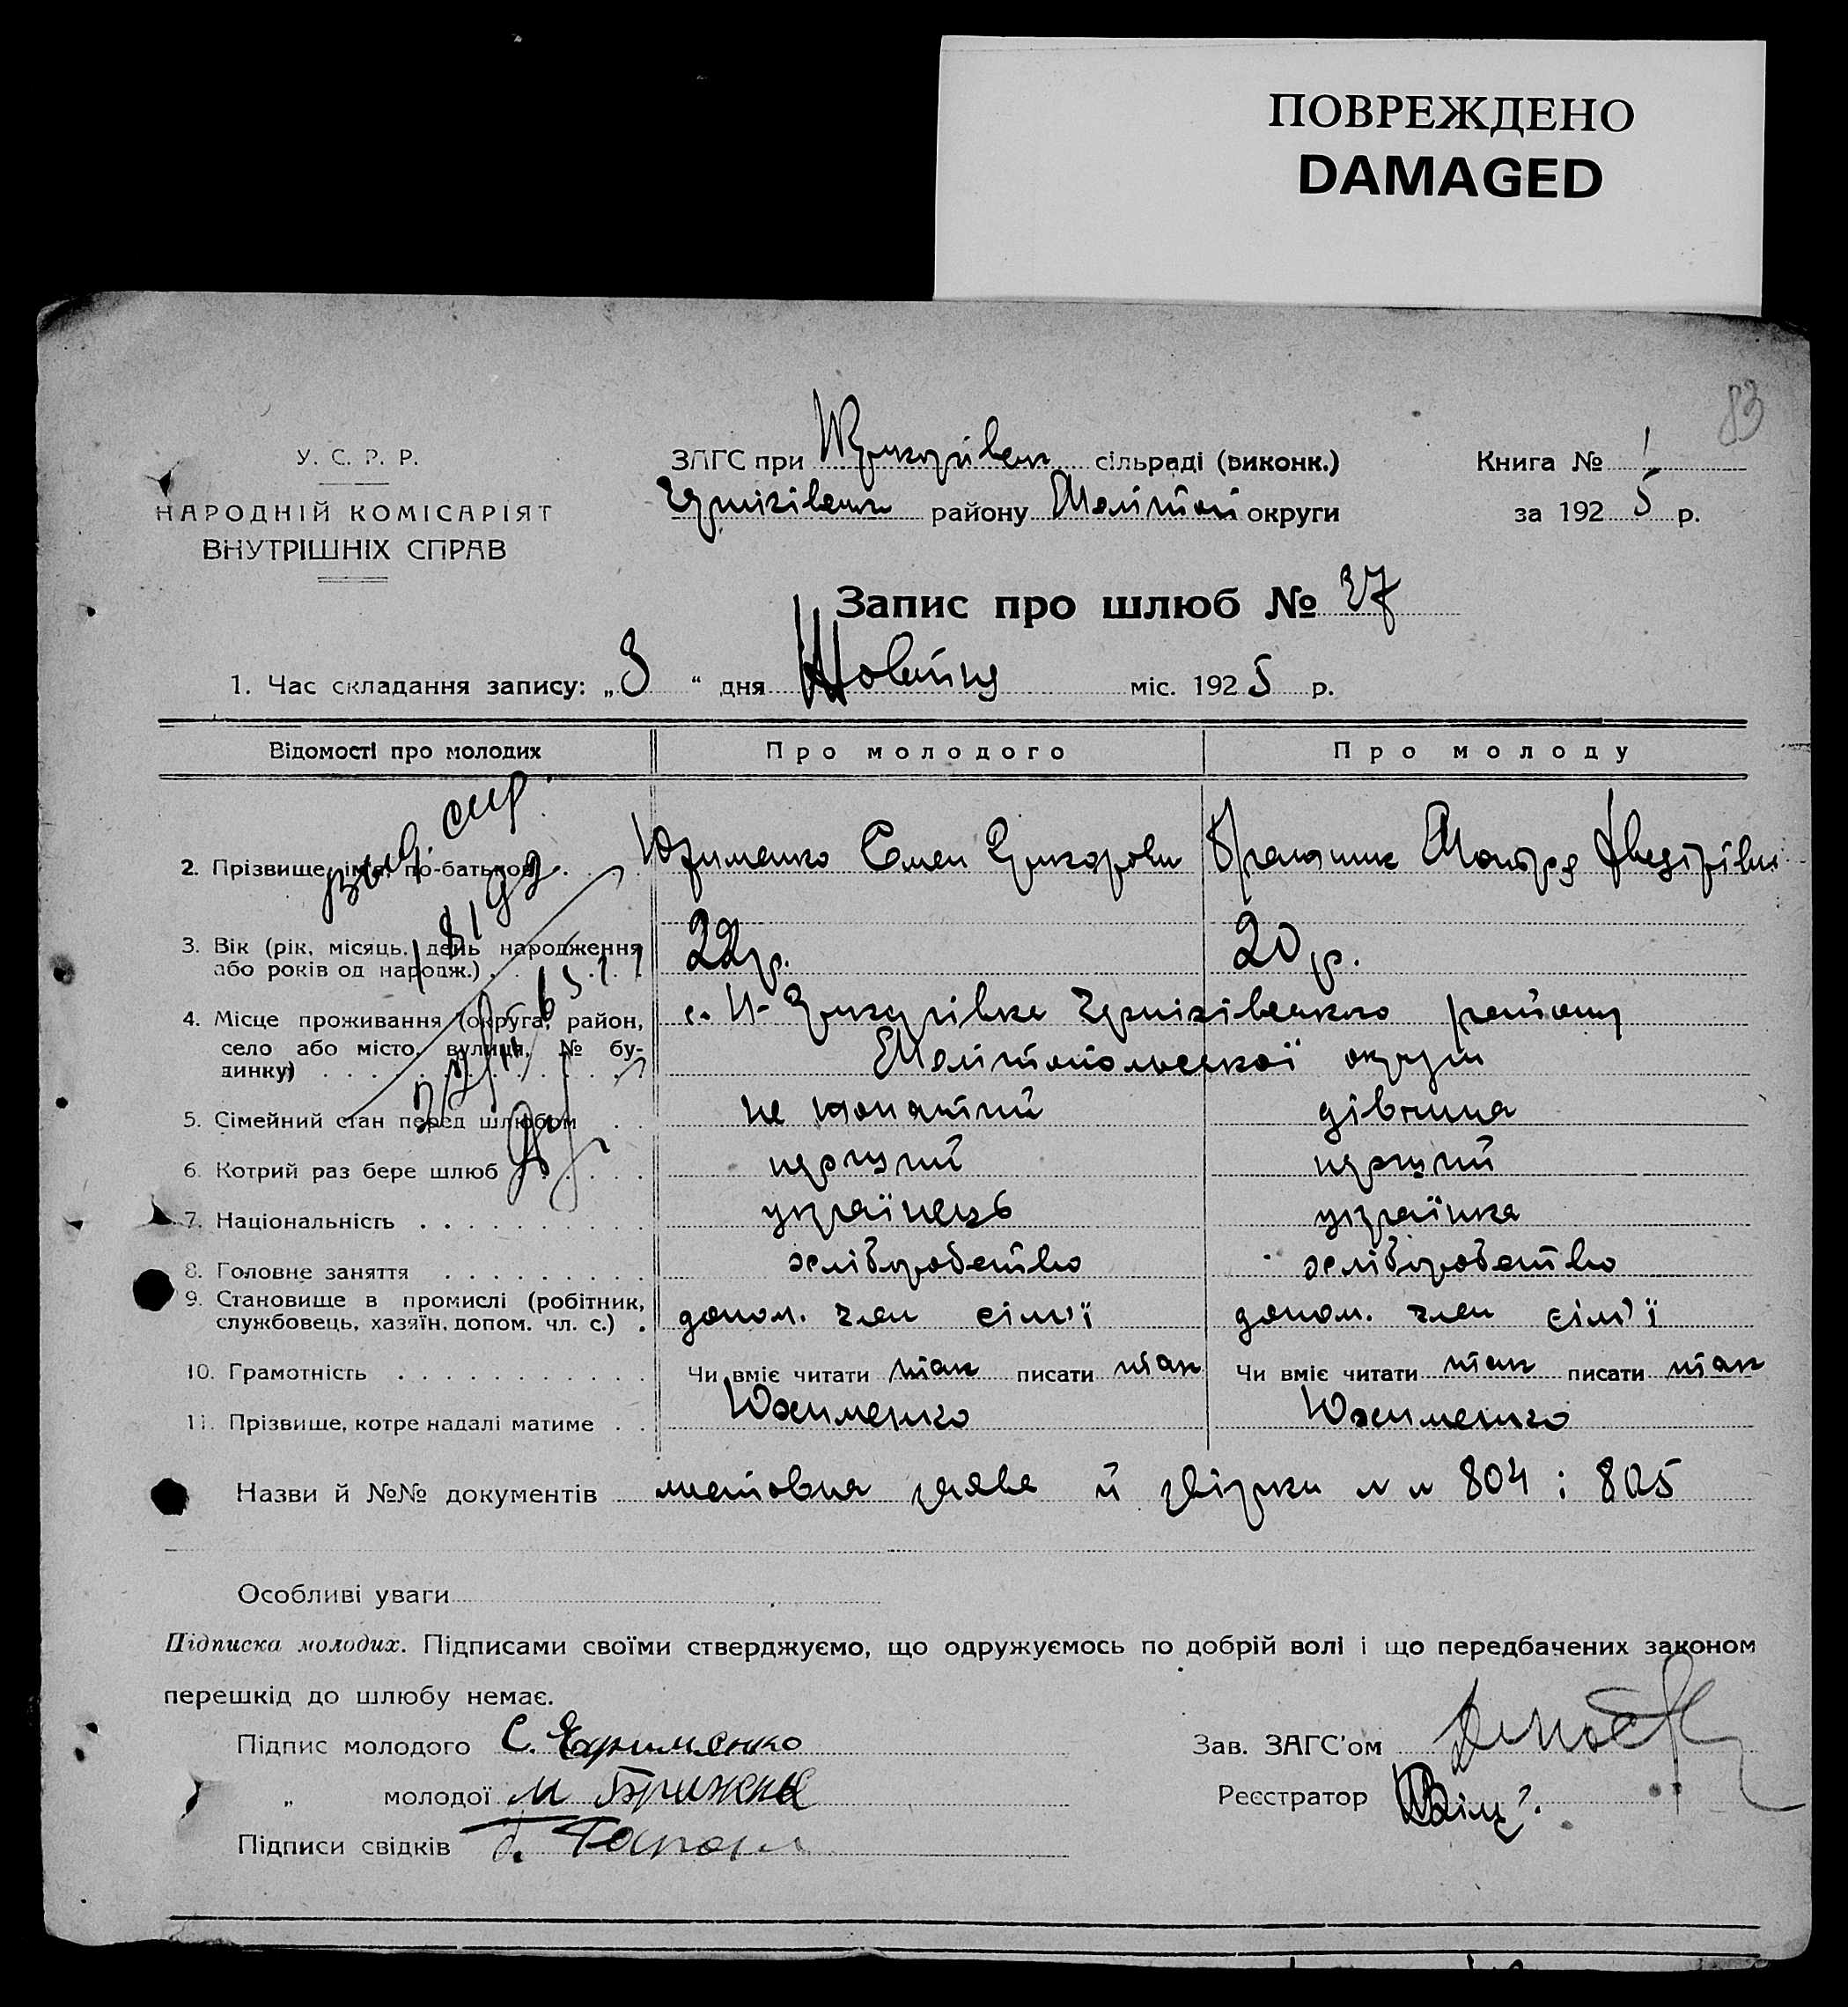 ПОВРЕЖДЕНО
DAMAGED
83
У. С. Р. Р.
НАРОДНІЙ КОМІСАРІЯТ
ВНУТРІШНІХ СПРАВ
ЗАГС при сільраді (виконк.)
району Меліто округи
Книга № 1
за 1925 р.
Запис про шлюб № 37
1. Час складання запису: „3“ дня Жовтня міс. 1925 р.
Відомості про молодих
Про молодого
Про молоду
2. Прізвище, імя, по-батькові Семен
3. Вік (рік, місяць, день народження або років од народж.) 22 р. 20 р.
4. Місце проживання (округа, район, село або місто, вулиця, № будинку) с. Н-Григорівка району
Мелітопольської округи
5. Сімейний стан перед шлюбом не жонатий дівчина
6. Котрий раз бере шлюб перший перший
7. Національність українець українка
8. Головне заняття хліборобство хліборобство
9. Становище в промислі (робітник, службовець, хазяїн, допом. чл. с.) допом. член сім'ї допом. член сім'ї
10. Грамотність Чи вміє читати так писати так Чи вміє читати так писати так
11. Прізвище, котре надалі матиме Юхименко Юхименко
Назви й №№ документів заява й 804 і 805
Особливі уваги
Підписка молодих. Підписами своїми стверджуємо, що одружуємось по добрій волі і що передбачених законом
перешкід до шлюбу немає.
Підпис молодого С.
Зав. ЗАГС'ом
„ молодої М
Реєстратор
Підписи свідків